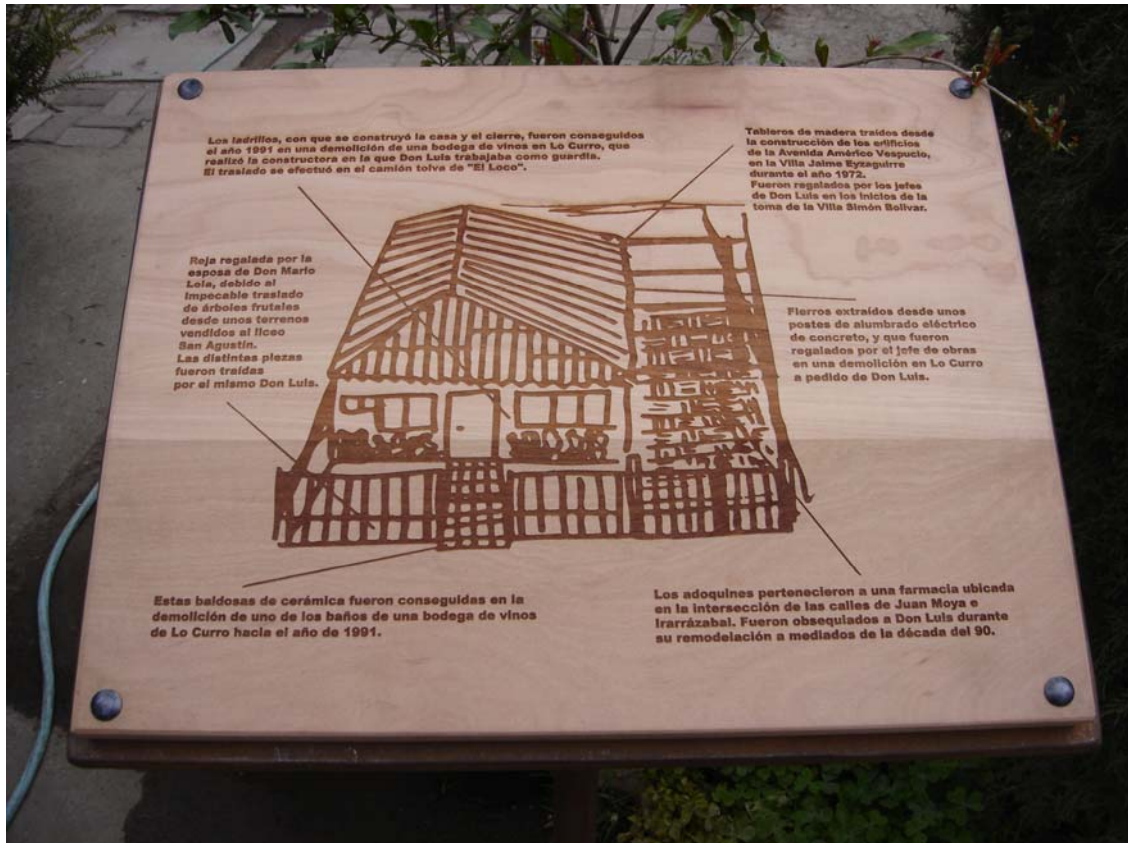 Los ladrillos, con que se construyó la casa y el cierre, fueron conseguidos
el año 1991 en una demolición de una bodega de vinos en Lo Curro, que
realizó la constructora en la que Don Luis trabajaba como guardia.
El traslado se efectuó en el camión tolva de "El Loco".
Tableros de madera traídos desde
la construcción de los edificios
de la Avenida Américo Vespucio,
en la Villa Jaime Eyzaguirre
durante el año 1972.
Fueron regalados por los jefes
de Don Luis en los inicios de la
toma de la Villa Simón Bolívar.
Reja regalada por la
esposa de Don Mario
Lola, debido al
impecable traslado
de árboles frutales
desde unos terrenos
vendidos al liceo
San Agustín.
Las distintas piezas
fueron traídas
por el mismo Don Luis.
Fierros extraídos desde unos
postes de alumbrado eléctrico
de concreto, y que fueron
regalados por el jefe de obras
en una demolición en Lo Curro
a pedido de Don Luis.
Estas baldosas de cerámica fueron conseguidas en la
demolición de uno de los baños de una bodega de vinos
de Lo Curro hacia el año de 1991.
Los adoquines pertenecieron a una farmacia ubicada
en la intersección de las calles de Juan Moya e
Irarrázabal. Fueron obsequiados a Don Luis durante
su remodelación a mediados de la década del 90.